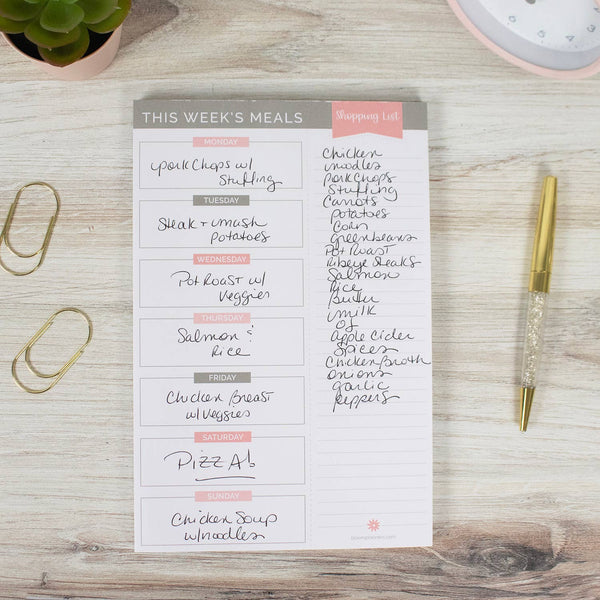 THIS WEEK'S MEALS
MONDAY
porkchops w/
Stuffing
TUESDAY
Steak + mash
potatoes
WEDNESDAY
Pot Roast w/
Veggies
THURSDAY
Salmon &
Rice
FRIDAY
Chicken Breast
w/Veggies
SATURDAY
PIZZA!
SUNDAY
Chicken Soup
w/noodles
Shopping List
Chicken
noodles
porkchops
Stuffing
Carrots
potatoes
Corn
greenbeans
Pot Roast
Ribeye Steaks
Salmon
Rice
Butter
milk
OJ
apple Cider
Spices
Chicken Broth
onions
garlic
peppers
bloomplanners.com